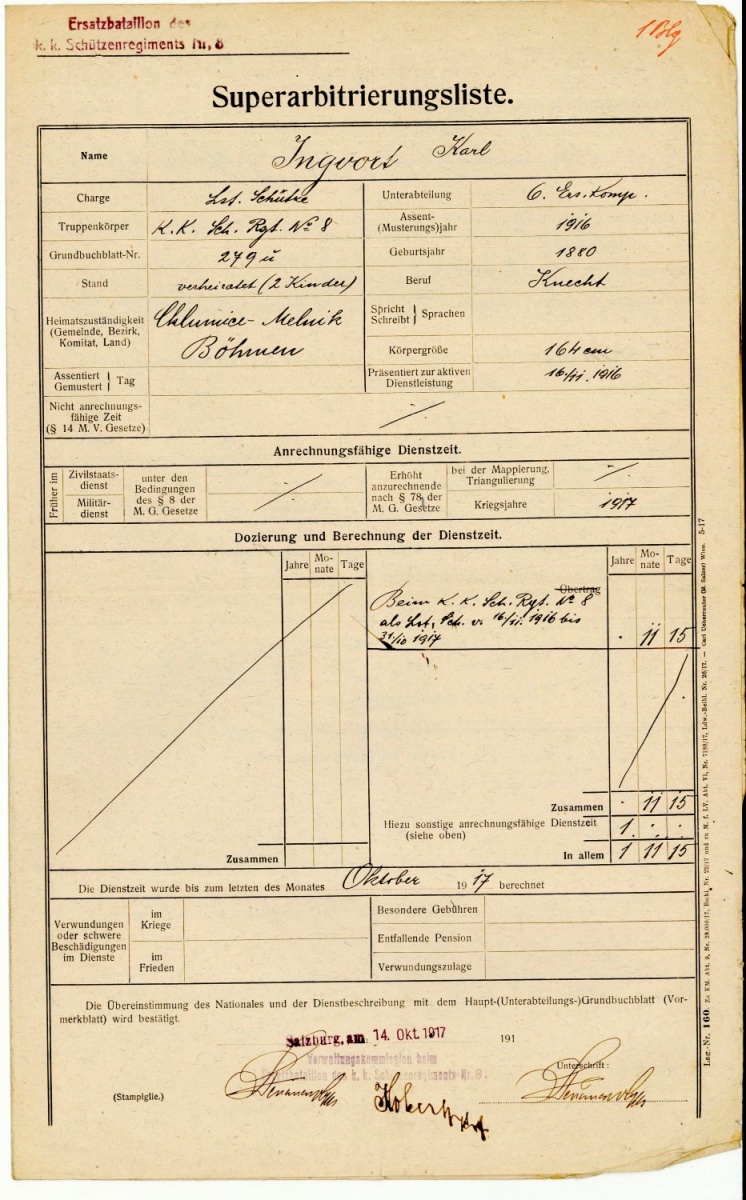 Ersatzbataillon des
k. k. Schützenregiments Nr. 8
1 Blg
Superarbitrierungsliste.
Name Ingvort Karl
Charge Lst. Schütze Unterabteilung 6. Ers. Komp.
Truppenkörper K. K. Sch. Rgt. No 8 Assent-(Musterungs)jahr 1916
Grundbuchblatt-Nr. 279 Geburtsjahr 1880
Stand verheiratet (2 Kinder) Beruf Knecht
Heimatszuständigkeit (Gemeinde, Bezirk, Komitat, Land) Chlumice-Melnik Böhmen
Spricht Schreibt Sprachen
Körpergröße 164 cm
Assentiert Gemustert Tag
Präsentiert zur aktiven Dienstleistung 16/11. 1916
Nicht anrechnungsfähige Zeit (§ 14 M. V. Gesetze) ·/·
Anrechnungsfähige Dienstzeit.
Früher im Zivilstaatsdienst Militärdienst
unter den Bedingungen des § 8 der M. G. Gesetze ·/·
Erhöht anzurechnende nach § 78 der M. G. Gesetze
bei der Mappierung, Triangulierung ·/·
Kriegsjahre 1917
Dozierung und Berechnung der Dienstzeit.
Jahre Monate Tage Jahre Monate Tage
Übertrag
Beim K. K. Sch. Rgt. No 8
als Lst. Sch. v. 16/11. 1916 bis
31/10 1917 · 11 15
Zusammen · 11 15
Hiezu sonstige anrechnungsfähige Dienstzeit (siehe oben) 1 · ·
Zusammen In allem 1 11 15
Die Dienstzeit wurde bis zum letzten des Monates Oktober 1917 berechnet
Verwundungen oder schwere Beschädigungen im Dienste
im Kriege
im Frieden
Besondere Gebühren
Entfallende Pension
Verwundungszulage
Die Übereinstimmung des Nationales und der Dienstbeschreibung mit dem Haupt-(Unterabteilungs-)Grundbuchblatt (Vor-
merkblatt) wird bestätigt.
Salzburg, am 14. Okt. 1917 191
Verwaltungskommission beim
Ersatzbataillon des k. k. Schützenregiments Nr. 8.
Unterschrift:
(Stampiglie.)
Lag.-Nr. 160.
Carl Ueberreuter (M. Salzer) Wien. 5-17